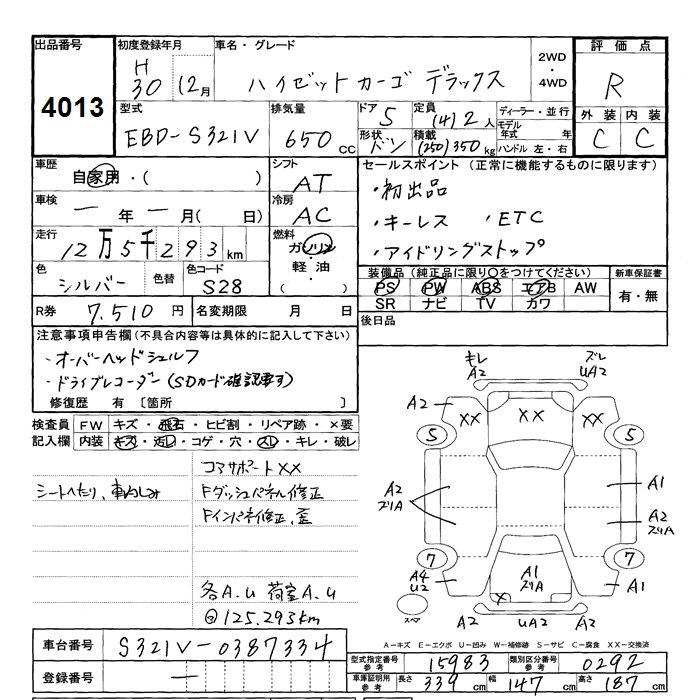 出品番号 初度登録年月 車名・グレード 2WD・4WD 評価点
4013 H30 12月 ハイゼットカーゴ デラックス R
型式 排気量 ドア 定員 ディーラー・並行 外装 内装
EBD-S321V 650cc 5 (4)2人 モデル年式 年 C C
形状 バン 積載 (250)350kg ハンドル 左・右
車歴 シフト セールスポイント (正常に機能するものに限ります)
自家用・( ) AT ・初出品
車検 冷房
ー年ー月( 日) AC ・キーレス ・ETC
走行 燃料 ・アイドリングストップ
12万5千293km ガソリン
色 色替 色コード 軽・油 装備品 (純正品に限り○をつけてください) 新車保証書
シルバー S28 ( ) PS PW ABS エアB AW 有・無
SR ナビ TV カワ
R券 7,510円 名変期限 月 日 後日品
注意事項申告欄(不具合内容等は具体的に記入して下さい)
・オーバーヘッドシェルフ
・ドライブレコーダー(SDカード確認要す)
修復歴 有 [箇所 ]
検査員 FW キズ・飛石・ヒビ割・リペア跡・×要
記入欄 内装 キズ・汚レ・コゲ・穴・スレ・キレ・破レ
コアサポートXX
シートへたり、車内しみ Fダッシュパネル修正
Fインパネ修正、歪
各A.U 荷室A.U
◎125.293km
キレ A2 ズレ UA2
A2 XX XX XX
5 5
A2 ズリA A1
A2 ズリA
7 7
A4 U2 A1 ズリA A1
X
スペア A2 UA2 A2
A-キズ E-エクボ U-凹み W-補修跡 S-サビ C-腐食 XX-交換済
車台番号 S321V-0387334
型式指定番号 参考 15983 類別区分番号 参考 0292
登録番号 ー
車庫証明用 参考 長さ 339cm 幅 147cm 高さ 187cm